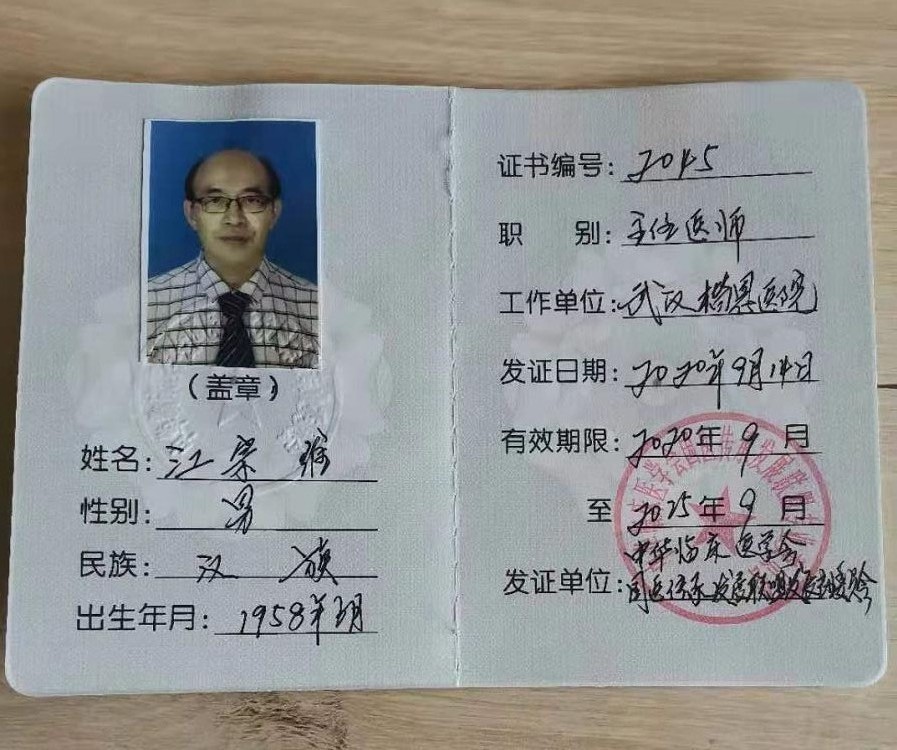 (盖章)
姓名:江宗
性别:男
民族:汉族
出生年月:1958年3月
证书编号:2045
职 别:主任医师
工作单位:武汉 医院
发证日期:2020年9月14日
有效期限:2020年9月
至2025年9月
中华临床医学会
发证单位:国医传承发展联盟